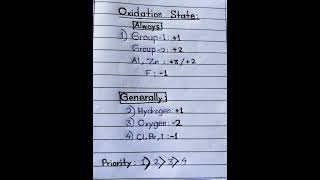 Oxidation State:
Always
1) Group-1: +1
Group-2: +2
Al, Zn: +3/+2
F: -1
Generally
2) Hydrogen: +1
3) Oxygen: -2
4) Cl, Br, I: -1
Priority: 1> 2> 3> 4